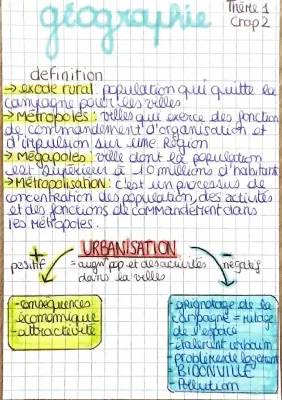 géographie
Thème 1
Chap 2
définition
→ exode rural: population qui quitte la
campagne pour les villes
→ Métropoles: villes qui exerce des fonction
de commandement d'organisation et
d'impulsion sur une Région
→ Mégapoles: ville dont la population
est supérieur à 10 millions d'habitants
→ Métropolisation: c'est un processus de
concentration des population, des activités
et des fonctions de commandement dans
les Métropoles.
+ URBANISATION -
positif = augm° pop et des activités négatif
dans la villes
- conséquences
économique
- attractivité
- grignotage de la
campagne = mitage
de l'espace
- étalement urbain
- problème de logement
- BIDONVILLE
- Pollution